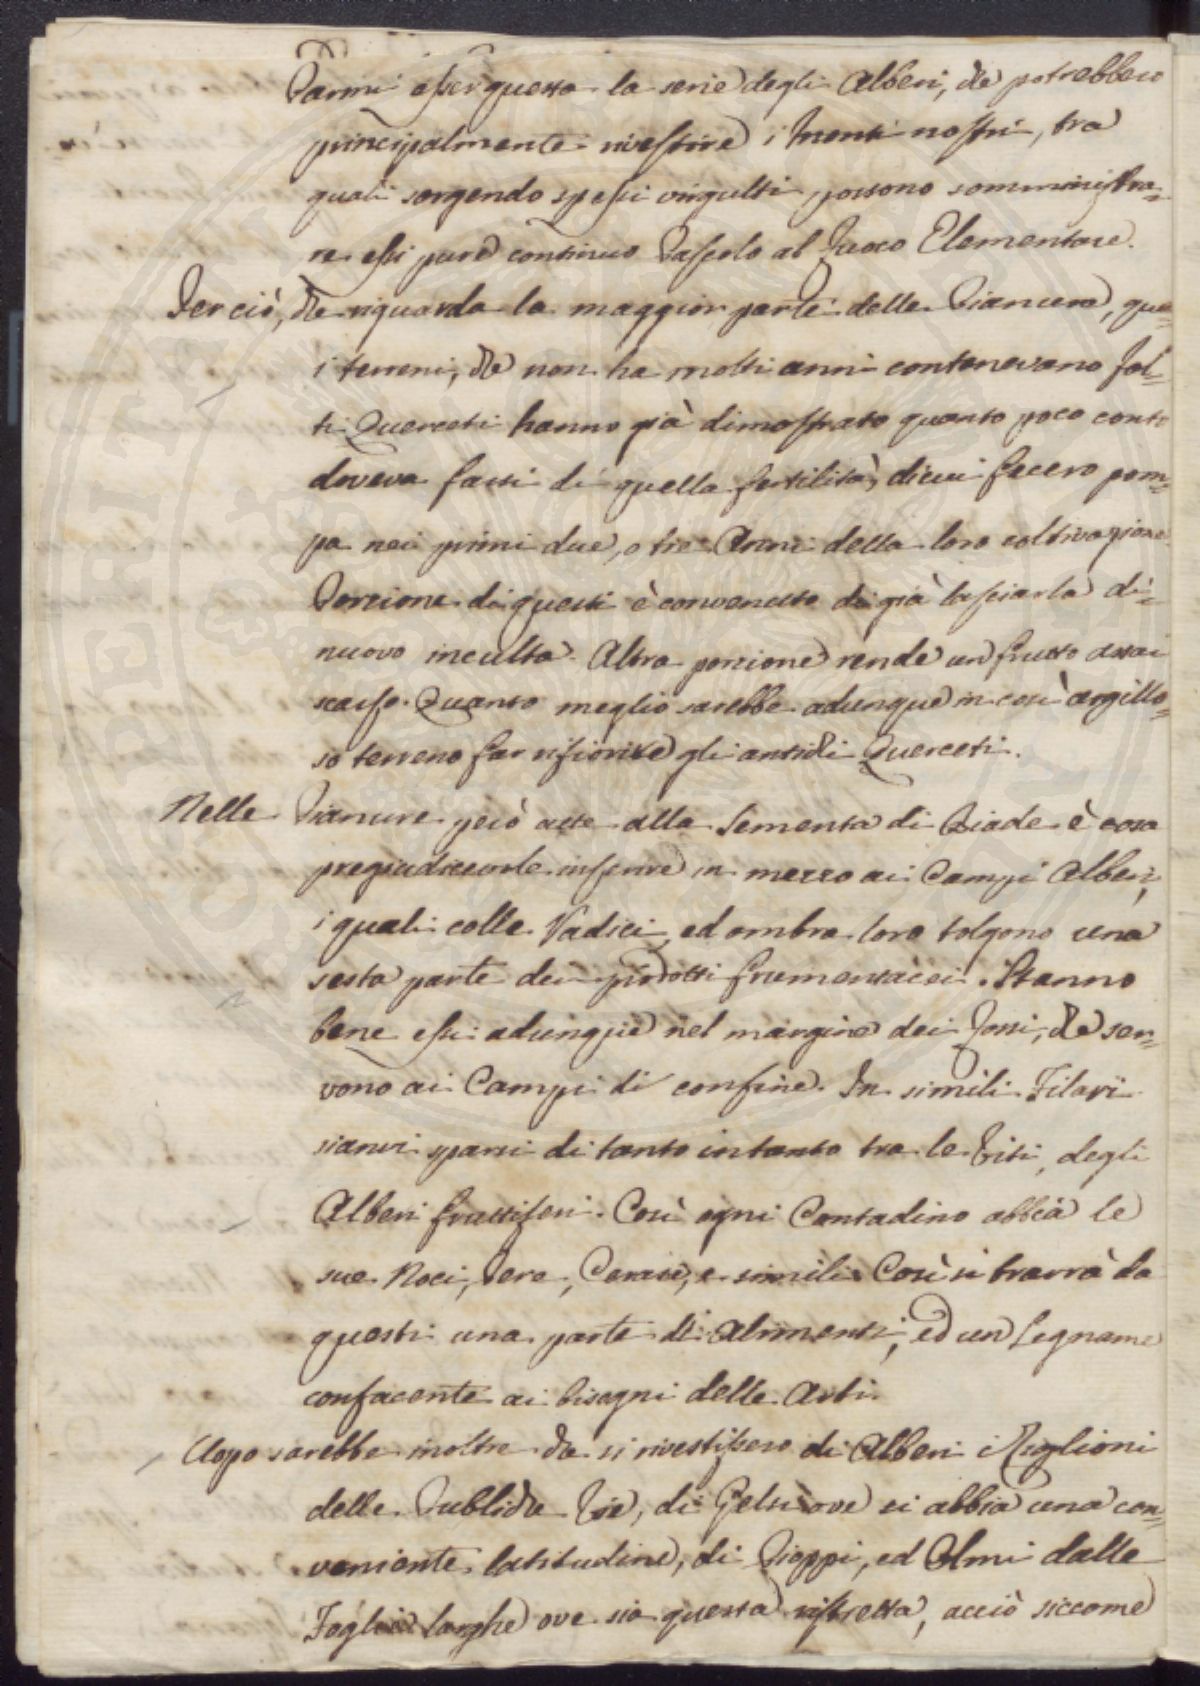 Parmi esser questa la serie degli Alberi, che potrebbero
principalmente rivestire i Monti nostri, tra
quali sorgendo spessi virgulti, possono somministra=
re essi pure continuo Pascolo al Fuoco Elementare.
Per ciò, che riguarda la maggior parte delle Pianure, que=
i terreni, che non ha molti anni contenevano fol=
ti Querceti hanno già dimostrato quanto poco conto
doveva farsi di quella fertilità, di cui fecero pom=
pa nei primi due, o tre Anni della loro coltivazione.
Porzione di questi è convenuto di già lasciarla di=
nuovo inculta. Altra porzione rende un frutto assai
scarso. Quanto meglio sarebbe adunque in così argillo=
so terreno far rifiorire gli antichi Querceti.
Nelle Pianure però atte alla Sementa di Biade è cosa
pregiudicevole inserire in mezzo ai Campi Alberi,
i quali colle Radici, ed ombra loro tolgono una
sesta parte dei prodotti frumentacei. Stanno
bene essi adunque nel margine dei Fossi, che ser=
vono ai Campi di confine. In simili Filari
sianvi sparsi di tanto in tanto tra le Viti, degli
Alberi fruttiferi. Così ogni Contadino abbia le
sue Noci, Pere, Cerase, e simili. Così si trarrà da
questi una parte di Alimenti, ed un Legname
confacente ai bisogni delle Arti.
Uopo sarebbe inoltre che si rivestissero di Alberi i Ciglioni
delle Pubbliche Vie, di Gelsi ove si abbia una con=
veniente latitudine, di Pioppi, ed Olmi dalle
Foglie larghe ove sia questa ristretta, acciò siccome
PERITAT